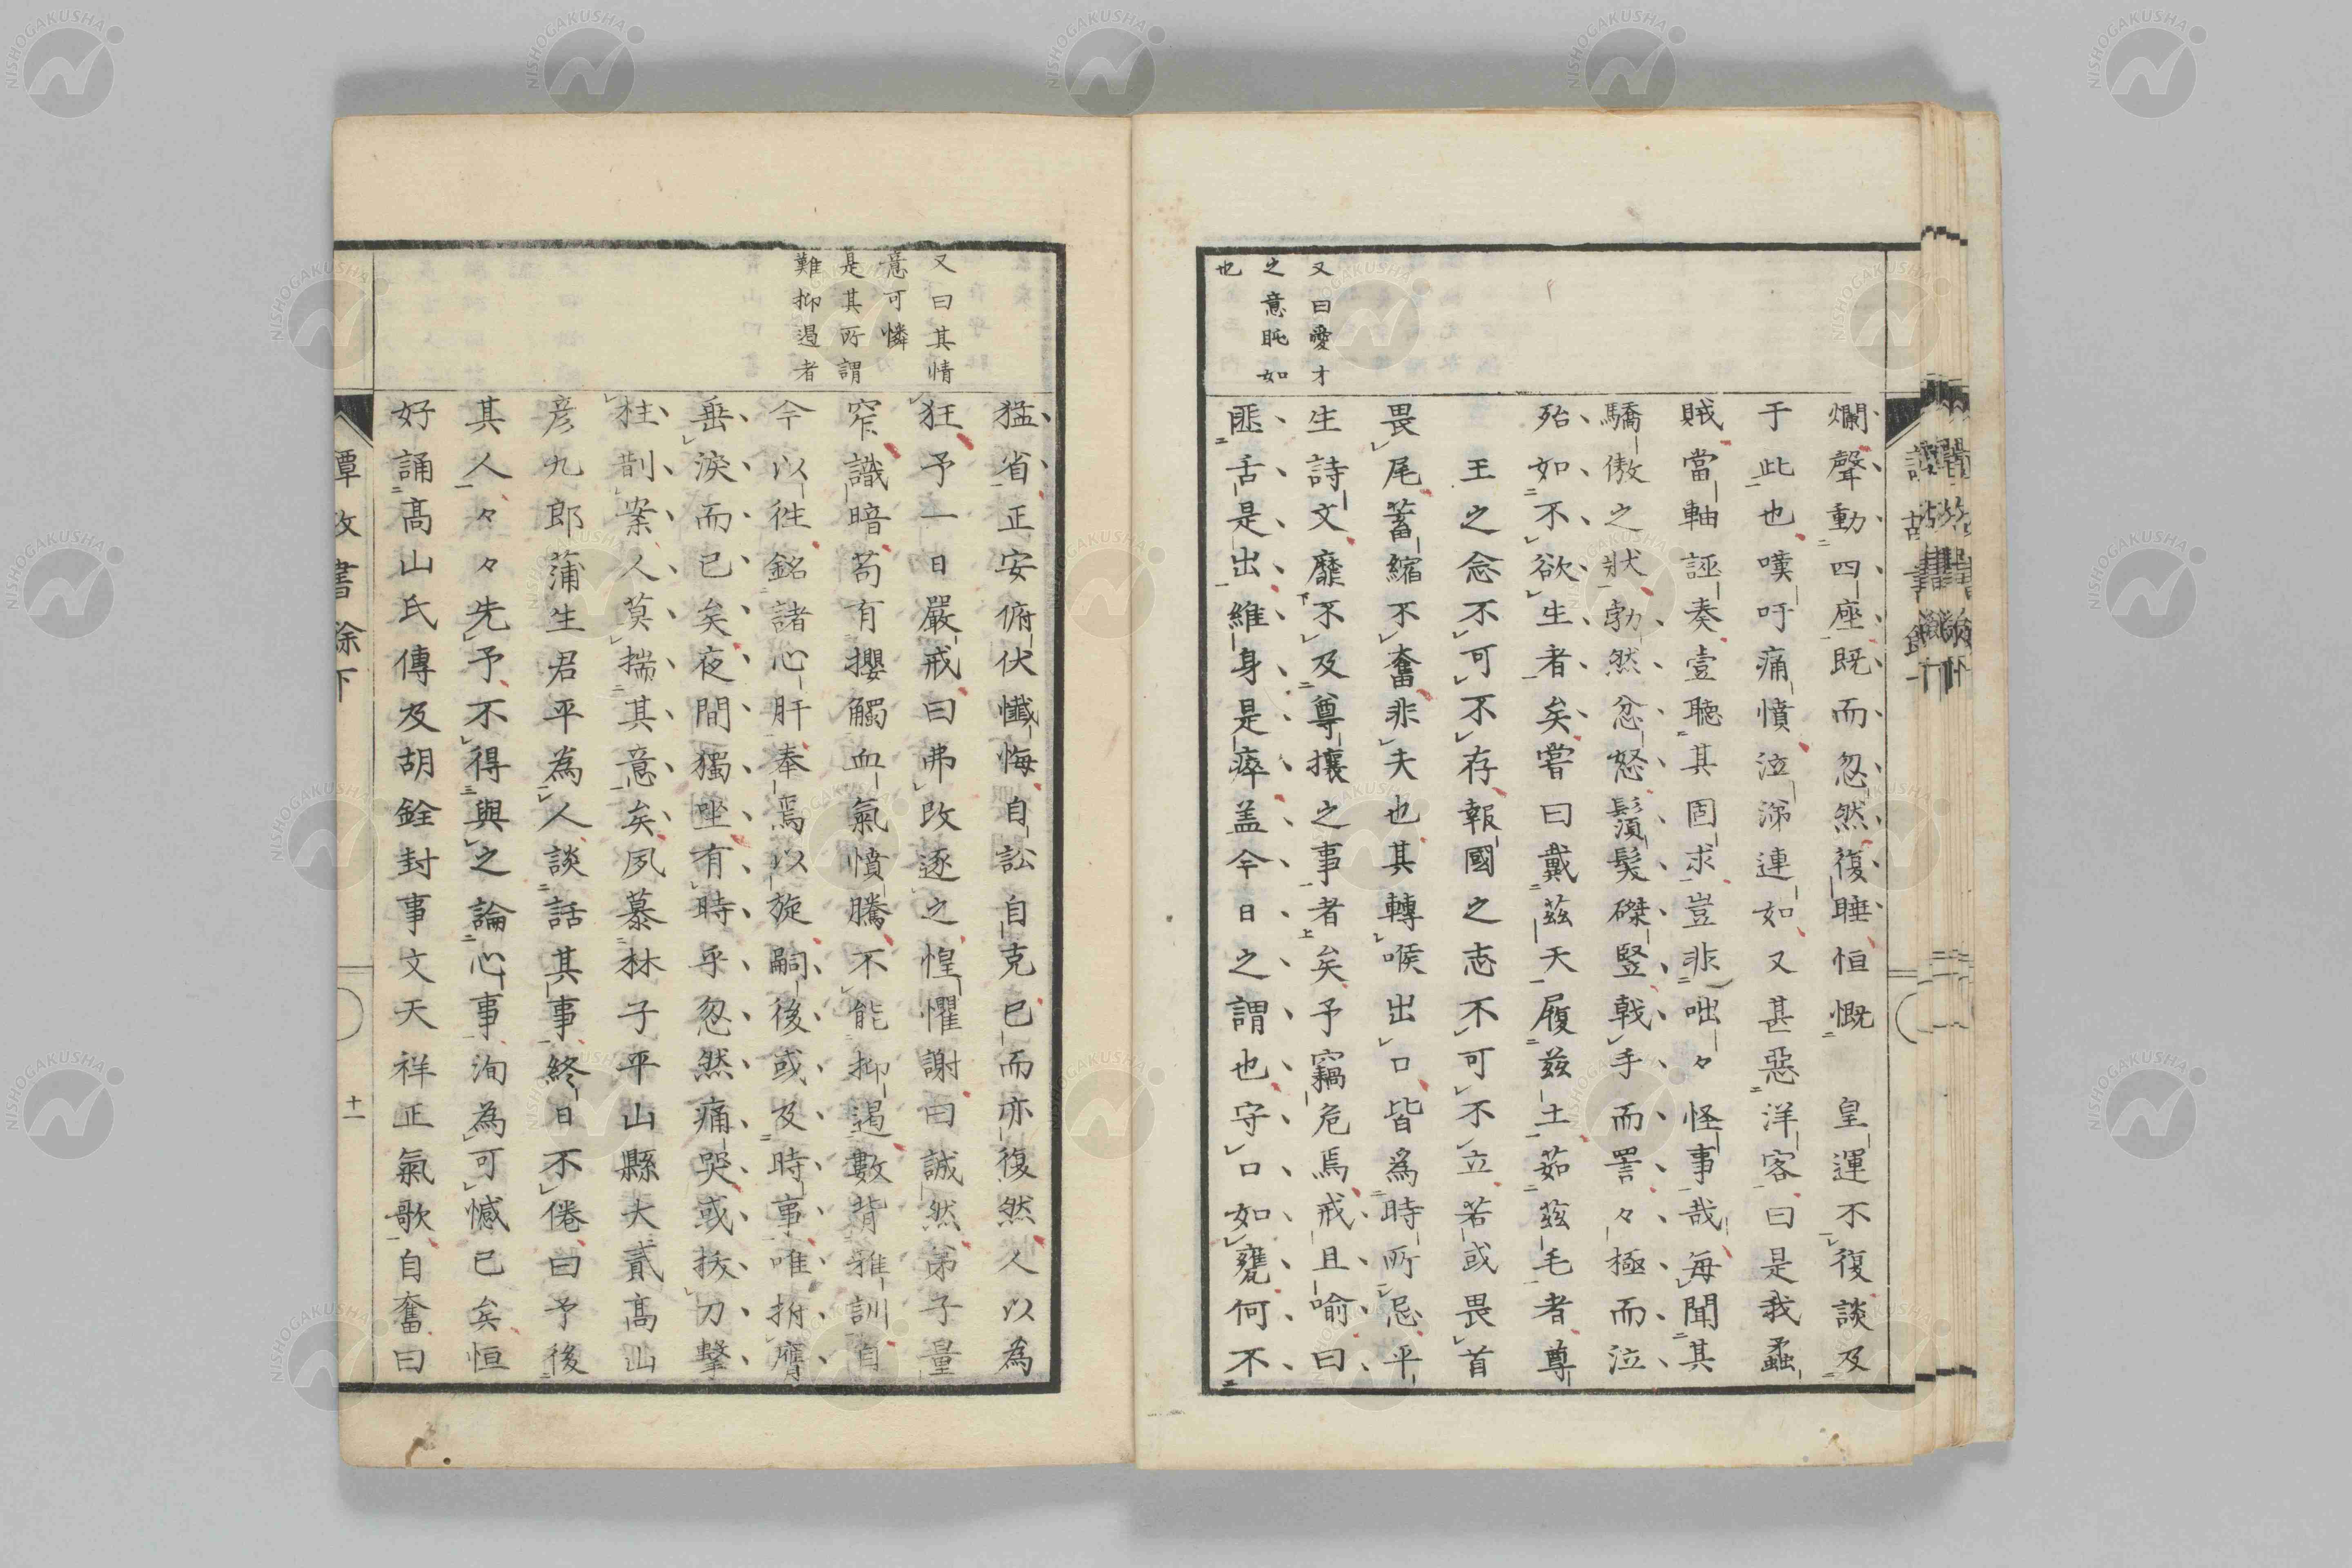 又曰愛才
之意眂如
也
爛聲動四座既而忽然復睡恒慨　皇運不復談及
于此也嘆吁痛憤泣涕連如又甚惡洋客曰是我蟊
賊當軸誣奏壹聽其固求豈非咄々怪事哉每聞其
驕傲之狀勃然忿怒鬚髮磔竪戟手而詈々極而泣
殆如不欲生者矣嘗曰戴茲天履茲土茹茲毛者尊
王之念不可不存報國之志不可不立若或畏首
畏尾蓄縮不奮非夫也其轉喉出口皆爲時所忌平
生詩文靡不及尊攘之事者矣予竊危焉戒且喻曰
匪舌是出維身是瘁盖今日之謂也守口如甕何不
又曰其情
意可憐
是其所謂
難抑遏者
猛省正安俯伏懺悔自訟自克已而亦復然人以為
狂予一日嚴戒曰弗改逐之惶懼謝曰誠然弟子量
窄識暗苟有攖觸血氣憤騰不能抑遏數背雅訓自
今以徃銘諸心肝奉焉以旋嗣後或及時事唯拊膺
垂淚而已矣夜間獨坐有時乎忽然痛哭或拔刀擊
柱剒案人莫揣其意矣夙慕林子平山縣大貳高山
彦九郎蒲生君平為人談話其事終日不倦曰予後
其人々々先予不得與之論心事洵為可憾已矣恒
好誦高山氏傳及胡銓封事文天祥正氣歌自奮曰
十一